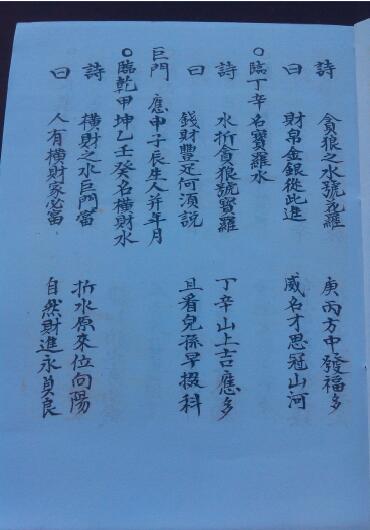 詩 貪狼之水號花羅 庚丙方中發福多
曰 財帛金銀從此進 威名才思冠山河
○臨丁辛名寶羅水
詩 水折貪狼號寶羅 丁辛山上吉應多
曰 錢財豐足何須說 且看兒孫早掇科
巨門 應申子辰生人并年月
○臨乾甲坤乙壬癸名橫財水
詩 橫財之水巨門當 折水原來位向陽
曰 人有橫財家必富 自然財進永貞良